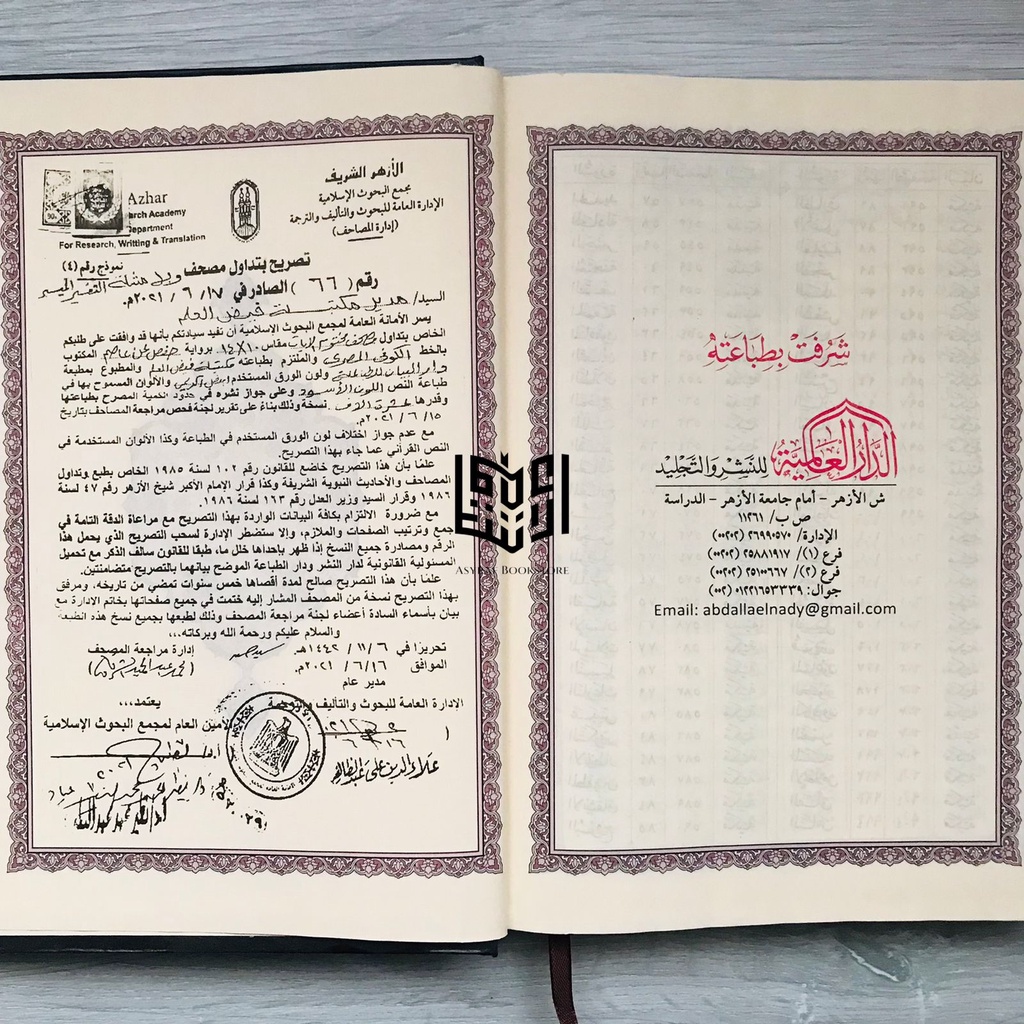 الأزهر الشريف
مجمع البحوث الإسلامية
الإدارة العامة للبحوث والتأليف والترجمة
(إدارة المصاحف)
Azhar
arch Academy
Department
For Research, Writting & Translation
نموذج رقم (٤)
تصريح بتداول مصحف
رقم (٦٦) الصادر في ١٧ / ٦ / ٢٠٢١م.
السيد/ مدير مكتبة فيض العلم
يسر الأمانة العامة لمجمع البحوث الإسلامية أن تفيد سيادتكم بأنها قد وافقت على طلبكم
الخاص بتداول مصحف مقاس ١٠×١٤ برواية حفص عن عاصم المكتوب
بالخط الكوفي المصري والملتزم بطباعته مكتبة فيض العلم والمطبوع بمطبعة
ولون الورق المستخدم والألوان المسموح بها في
طباعة النص اللون الأسود وعلى جواز نشره في حدود الكمية المصرح بطباعتها
وقدرها عشرة آلاف نسخة وذلك بناءً على تقرير لجنة فحص مراجعة المصاحف بتاريخ
١٥ / ٦ / ٢٠٢١م.
مع عدم جواز اختلاف لون الورق المستخدم في الطباعة وكذا الألوان المستخدمة في
النص القرآني عما جاء بهذا التصريح.
علمًا بأن هذا التصريح خاضع للقانون رقم ١٠٢ لسنة ١٩٨٥ الخاص بطبع وتداول
المصاحف والأحاديث النبوية الشريفة وكذا قرار الإمام الأكبر شيخ الأزهر رقم ٤٧ لسنة
١٩٨٦ وقرار السيد وزير العدل رقم ١٦٣ لسنة ١٩٨٦.
مع ضرورة الالتزام بكافة البيانات الواردة بهذا التصريح مع مراعاة الدقة التامة في
جمع وترتيب الصفحات والملازم، وإلا ستضطر الإدارة لسحب التصريح الذي يحمل هذا
الرقم ومصادرة جميع النسخ إذا ظهر بإحداها خلل ما، طبقا للقانون سالف الذكر مع تحميل
المسئولية القانونية لدار النشر ودار الطباعة الموضح بيانهما بالتصريح متضامنتين.
علمًا بأن هذا التصريح صالح لمدة أقصاها خمس سنوات تمضي من تاريخه، ومرفق
بهذا التصريح نسخة من المصحف المشار إليه ختمت في جميع صفحاتها بخاتم الإدارة مع
بيان بأسماء السادة أعضاء لجنة مراجعة المصحف وذلك لطبعها بجميع نسخ هذه الطبعة
والسلام عليكم ورحمة الله وبركاته،،،
تحريرًا في ٦ / ١١ / ١٤٤٢هـ
الموافق ١٦ / ٦ / ٢٠٢١م.
إدارة مراجعة المصحف
مدير عام
الإدارة العامة للبحوث والتأليف والترجمة
يعتمد،،،
الأمين العام لمجمع البحوث الإسلامية
شرفت بطباعته
الدار العالمية للنشر والتجليد
ش الأزهر - أمام جامعة الأزهر - الدراسة
ص ب/ ١١٣٦١
الإدارة/ ٢٦٩٩٠٥٧٠ (٠٠٢٠٢)
فرع (١)/ ٢٥٨٨١٩١٧ (٠٠٢٠٢)
فرع (٢)/ ٢٥١٠٠٦٦٧ (٠٠٢٠٢)
جوال: ٠١٢٢١٦٥٣٣٣٩ (٠٠٢)
Email: abdallaelnady@gmail.com
ASYKAR BOOKSTORE